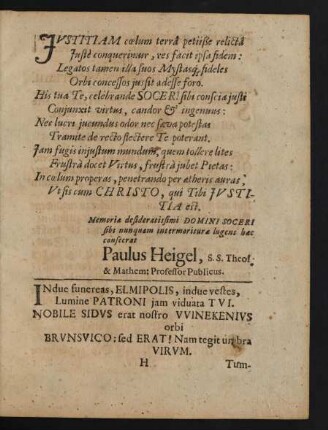 JVSTITIAM cœlum terrâ petiisse relictâ
Justè conquerimur, res facit ipsa fidem:
Legatos tamen illa suos Mystasq́; fideles
Orbi concessos jussit adesse foro.
His tua Te, celebrande SOCER! sibi conscia justi
Conjunxit virtus, candor & ingenuus:
Nec lucri jucundus odor nec sæva potestas
Tramite de recto flectere Te poterant.
Jam fugis injustum mundum, quem tollere lites
Frustrà docet Virtus, frustrà jubet Pietas:
In cœlum properas, penetrando per ætheris auras,
Ut sis cum CHRISTO, qui Tibi JVSTI-
TIA est.
Memoriæ desideratissimi DOMINI SOCERI
sibi nunquam intermorituræ lugens hæc
consecrat
Paulus Heigel, S. S. Theol.
& Mathem: Professor Publicus.
INdue funereas, ELMIPOLIS, indue vestes,
Lumine PATRONI jam viduata TVI.
NOBILE SIDVS erat nostro VVINEKENIVS
orbi
BRVNSVICO: sed ERAT! Nam tegit umbra
VIRVM.
H Tum-